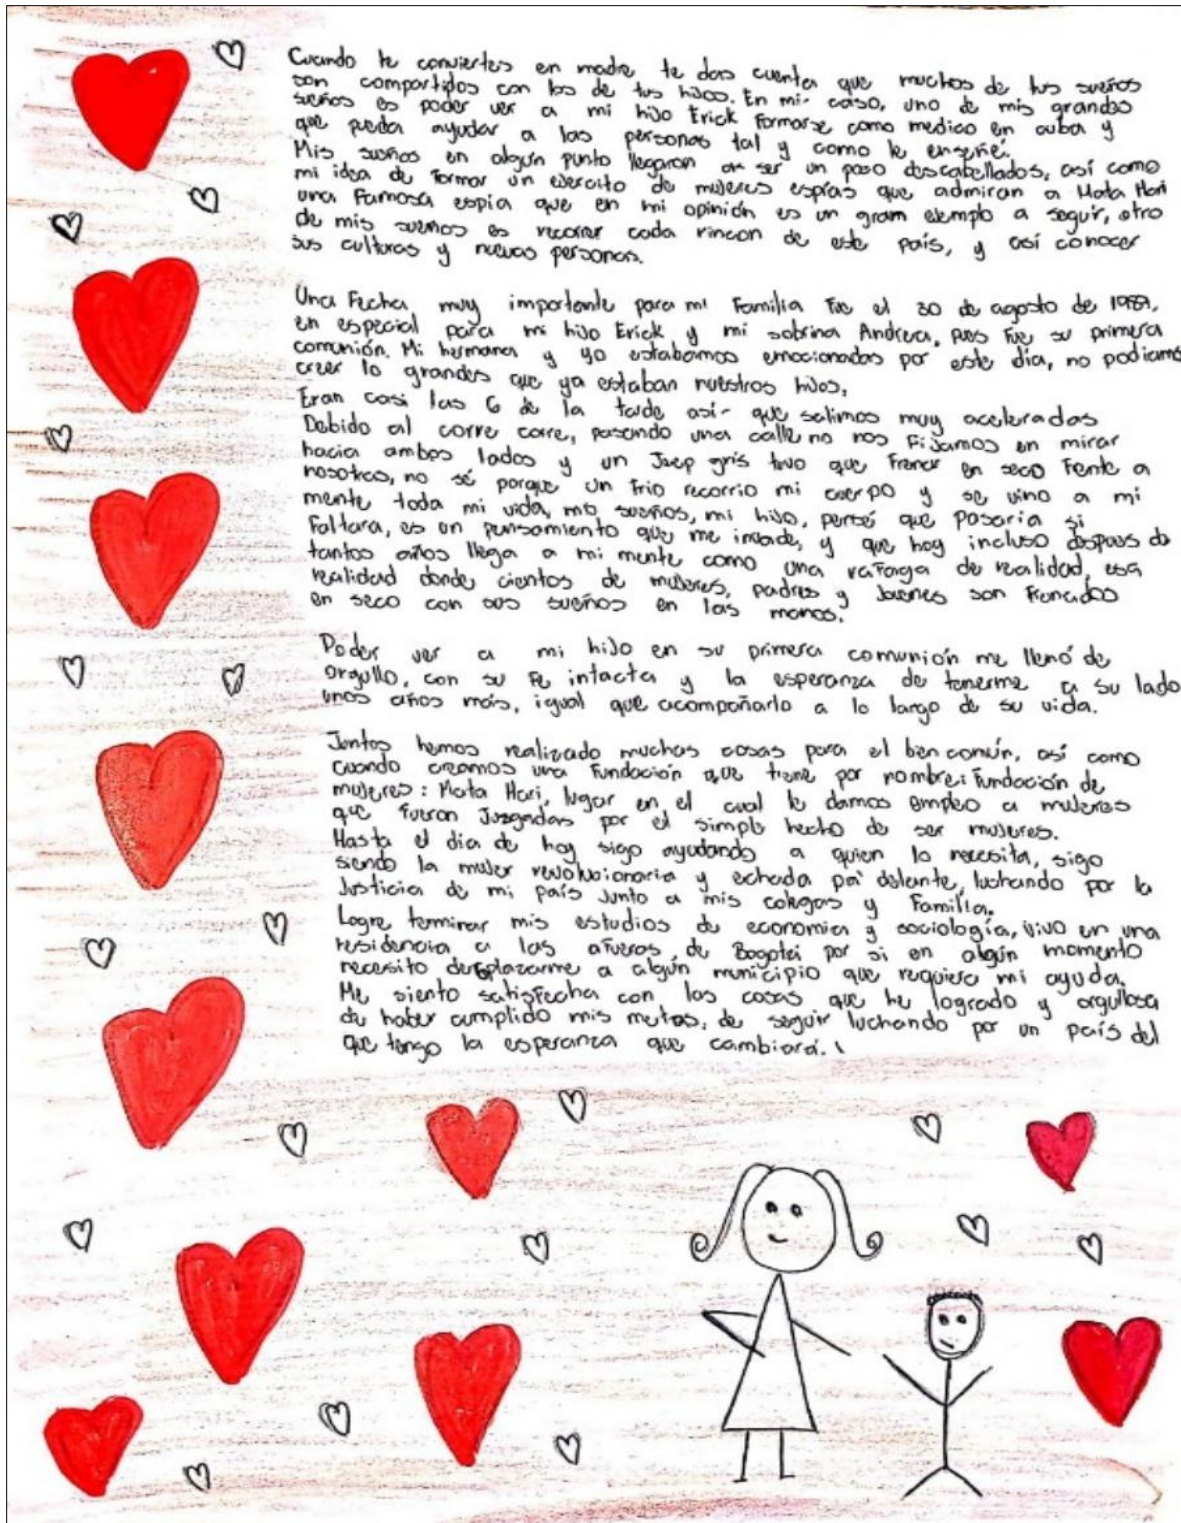 Cuando te conviertes en madre te das cuenta que muchos de tus sueños
son compartidos con los de tus hijos. En mi caso, uno de mis grandes
sueños es poder ver a mi hijo Erick formarse como medico en cuba y
que pueda ayudar a las personas tal y como le enseñé.
Mis sueños en algún punto llegaron a ser un poco descabellados, así como
mi idea de formar un ejercito de mujeres espías que admiran a Mata Hari
una famosa espia que en mi opinión es un gram ejemplo a seguir, otro
de mis sueños es recorrer cada rincon de este país, y así conocer
sus culturas y nuevas personas.
Una Fecha muy importante para mi Familia fue el 30 de agosto de 1989,
en especial para mi hijo Erick y mi sobrina Andrea, pues fue su primera
comunión. Mi hermana y yo estabamos emocionadas por este día, no podiamos
creer lo grandes que ya estaban nuestros hijos.
Eran casi las 6 de la tarde así que salimos muy aceleradas
Debido al corre corre, pasando una calle no nos Fijamos en mirar
hacia ambos lados y un Jeep gris tuvo que Frenar en seco Frente a
nosotras, no sé porque un frio recorrio mi cuerpo y se vino a mi
mente toda mi vida, mis sueños, mi hijo, pensé que pasaria si
Faltara, es un pensamiento que me invade, y que hoy incluso despues de
tantos años llega a mi mente como una rafaga de realidad, esa
realidad donde cientos de mujeres, padres y Jovenes son Frenados
en seco con sus sueños en las manos.
Poder ver a mi hijo en su primera comunión me llenó de
orgullo, con su Fe intacta y la esperanza de tenerme a su lado
unos años más, igual que acompañarlo a lo largo de su vida.
Juntos hemos realizado muchas cosas para el bien común, así como
cuando creamos una Fundación que tiene por nombre: Fundación de
mujeres: Mata Hari, lugar en el cual le damos empleo a mujeres
que fueron Juzgadas por el simple hecho de ser mujeres.
Hasta el día de hoy sigo ayudando a quien lo necesita, sigo
siendo la mujer revolucionaria y echada pa' delante, luchando por la
Justicia de mi país Junto a mis colegas y Familia.
Logre terminar mis estudios de economia y sociología, vivo en una
residencia a las afueras de Bogotá por si en algún momento
necesito desplazarme a algún municipio que requiera mi ayuda.
Me siento satisfecha con las cosas que he logrado y orgullosa
de haber cumplido mis metas, de seguir luchando por un país del
que tengo la esperanza que cambiará.